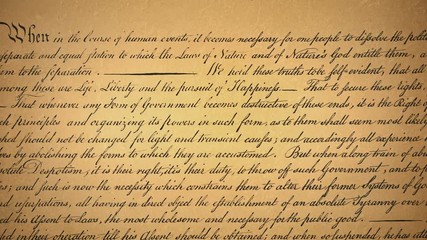 When in the Course of human events, it becomes necessary for one people to dissolve the polit
separate and equal station to which the Laws of Nature and of Nature's God entitle them, a
em to the separation. We hold these truths to be self-evident, that all
among these are Life, Liberty and the pursuit of Happiness. — That to secure these rights,
— That whenever any Form of Government becomes destructive of these ends, it is the Right of
ch principles and organizing its powers in such form, as to them shall seem most likely
shed should not be changed for light and transient causes; and accordingly all experience
ves by abolishing the forms to which they are accustomed. But when a long train of abus
solute Despotism, it is their right, it is their duty, to throw off such Government, and to p
es; and such is now the necessity which constrains them to alter their former Systems of Go
nd usurpations, all having in direct object the establishment of an absolute Tyranny over t
ed his Assent to Laws, the most wholesome and necessary for the public good.
ed in their operation till his Assent should be obtained; and when so suspended, he has utt